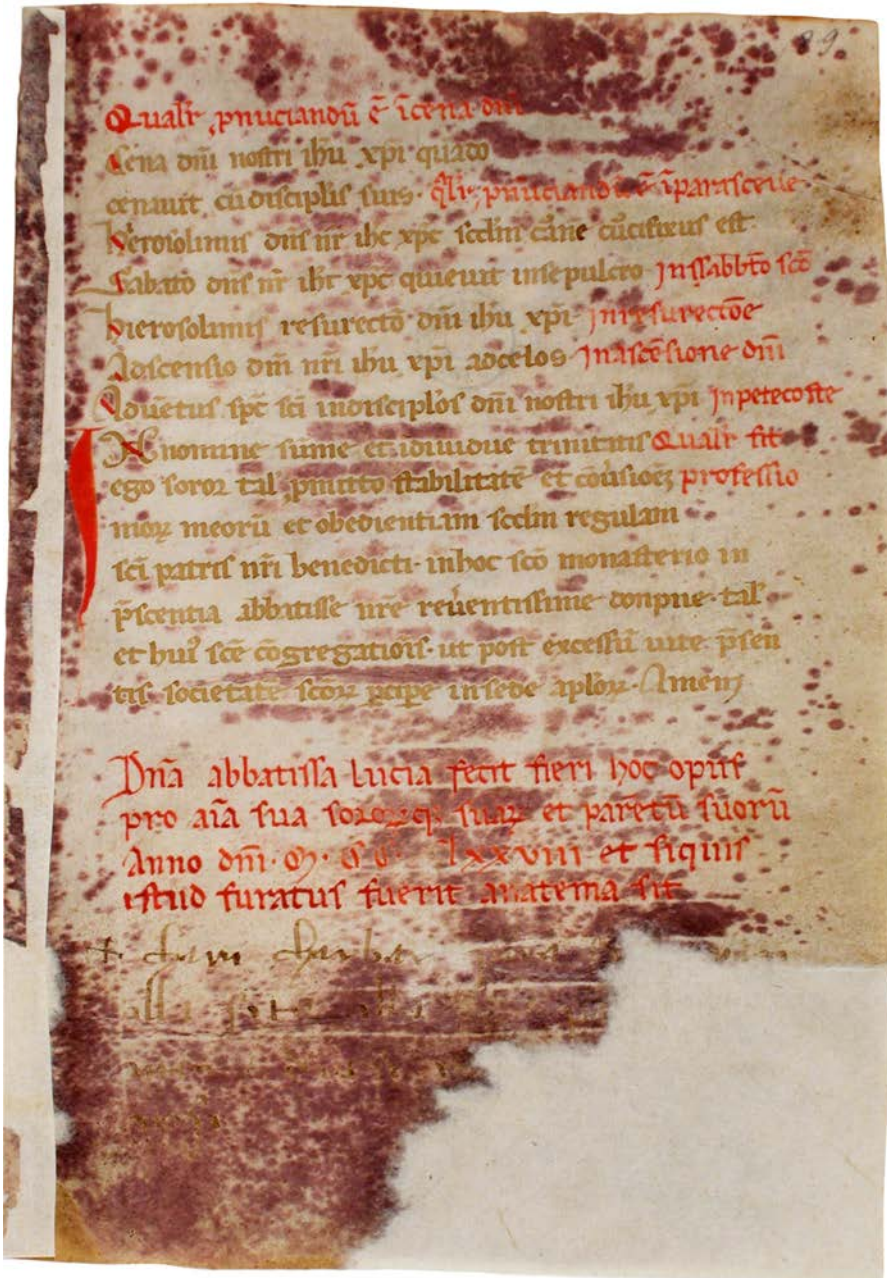 89
Qualr pnuciandu e icena dni
Cena dni nostri ihu xpi quado
cenauit cu disciplis suis. qlr pnuciandu e i parasceue
hierosolimis dns nr ihc xpc scdm carne crucifixus est
Sabato dns nr ihc xpc quieuit insepulcro in ssabbto sco
hierosolimis resurecto dni ihu xpi in resurectoe
Adscensio dni nri ihu xpi adcelos in ascesione dni
Aduetus spc sci indisciplos dni nostri ihu xpi in petecoste
IN nomine sume et idiuidue trinitatis Qualr fit
ego soror tal pmitto stabilitate et couersioez professio
moꝝ meoru et obedientiam scdm regulam
sci patris nri benedicti. inhoc sco monasterio in
pscentia abbatisse nre reuentissime donpne. tal
et hui sce cogregatiois. ut post excessu uite psen
tis societate scoꝝ pcipe insede aploꝝ. Amen
Dna abbatissa lucia fecit fieri hoc opus
pro aia sua soroꝝq suaꝝ et paretu suoru
Anno dni. M. C C. lxxviii et siquis
istud furatus fuerit anatema sit